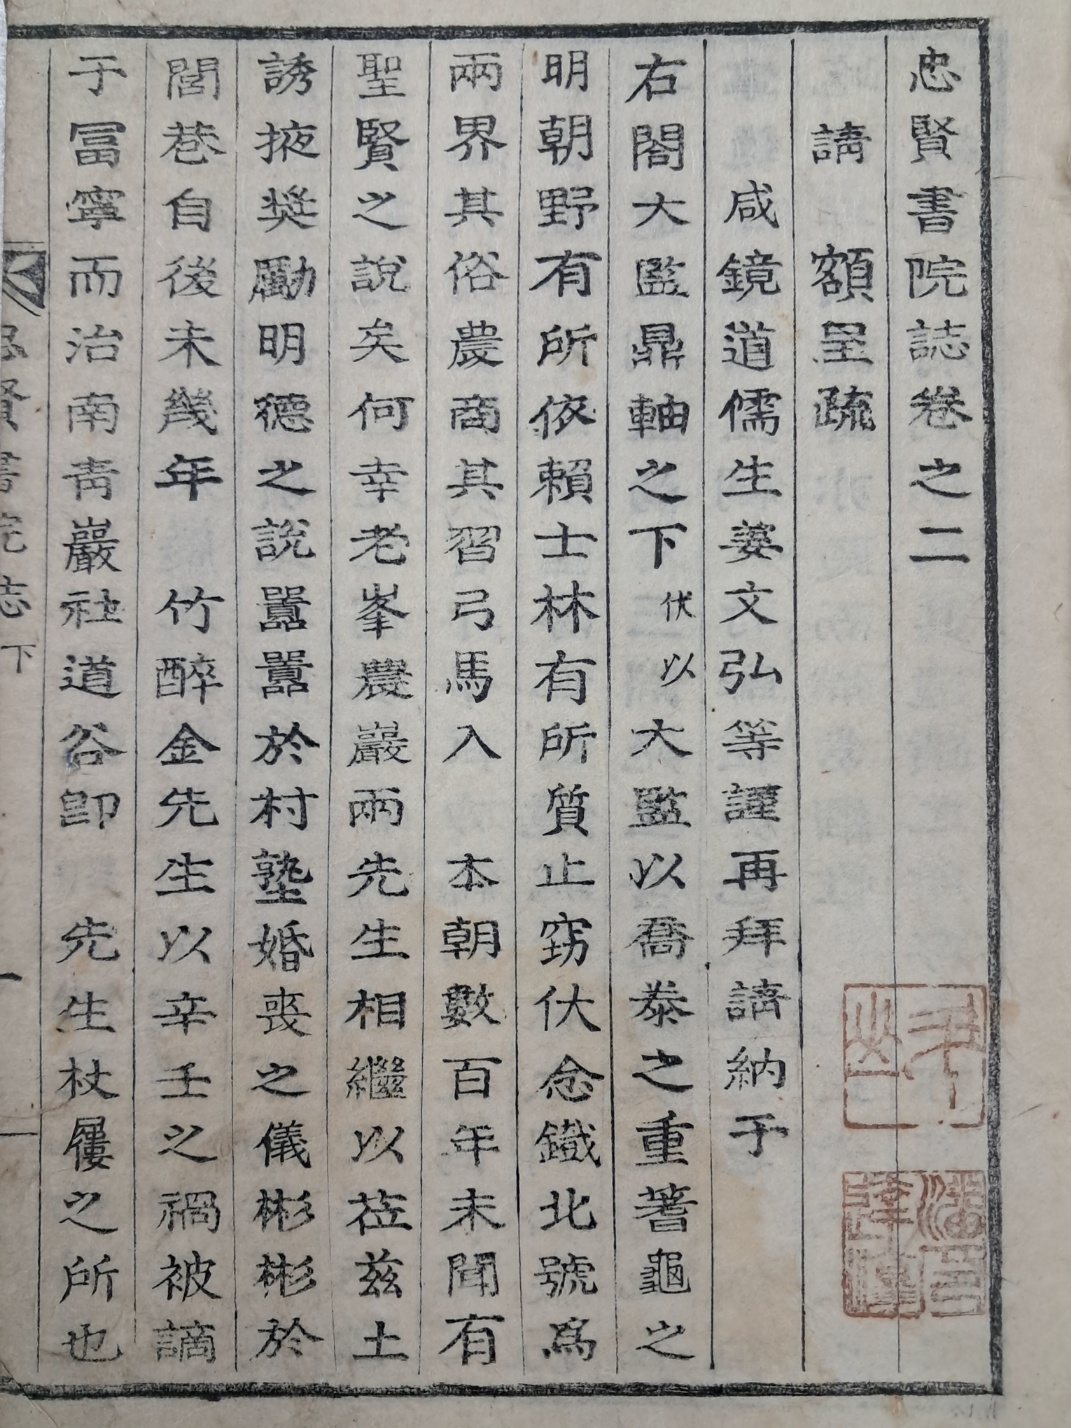 忠賢書院誌卷之二
請 額呈疏
咸鏡道儒生姜文弘等謹再拜請納于
右閤大監鼎軸之下伏以大監以喬泰之重蓍龜之
明朝野有所依賴士林有所質止窃伏念鐵北號爲
兩界其俗農商其習弓馬入 本朝數百年未聞有
聖賢之說矣何幸老峯農巖兩先生相繼以莅兹土
誘掖奬勵明德之說囂囂於村塾婚喪之儀彬彬於
閭巷自後未幾年 竹醉金先生以辛壬之禍被謫
于富寧而治南靑巖社道谷卽 先生杖屨之所也
忠賢書院志下
一